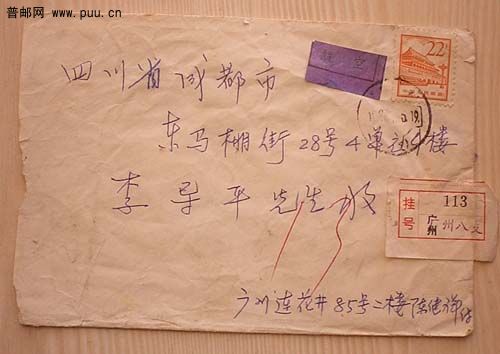 普邮网
www.puu.cn
航空
22
四川省成都市
东马棚街28号4单元4楼
李导平先生收
挂号
113
广州
州八支
广州莲花井85号二楼陈